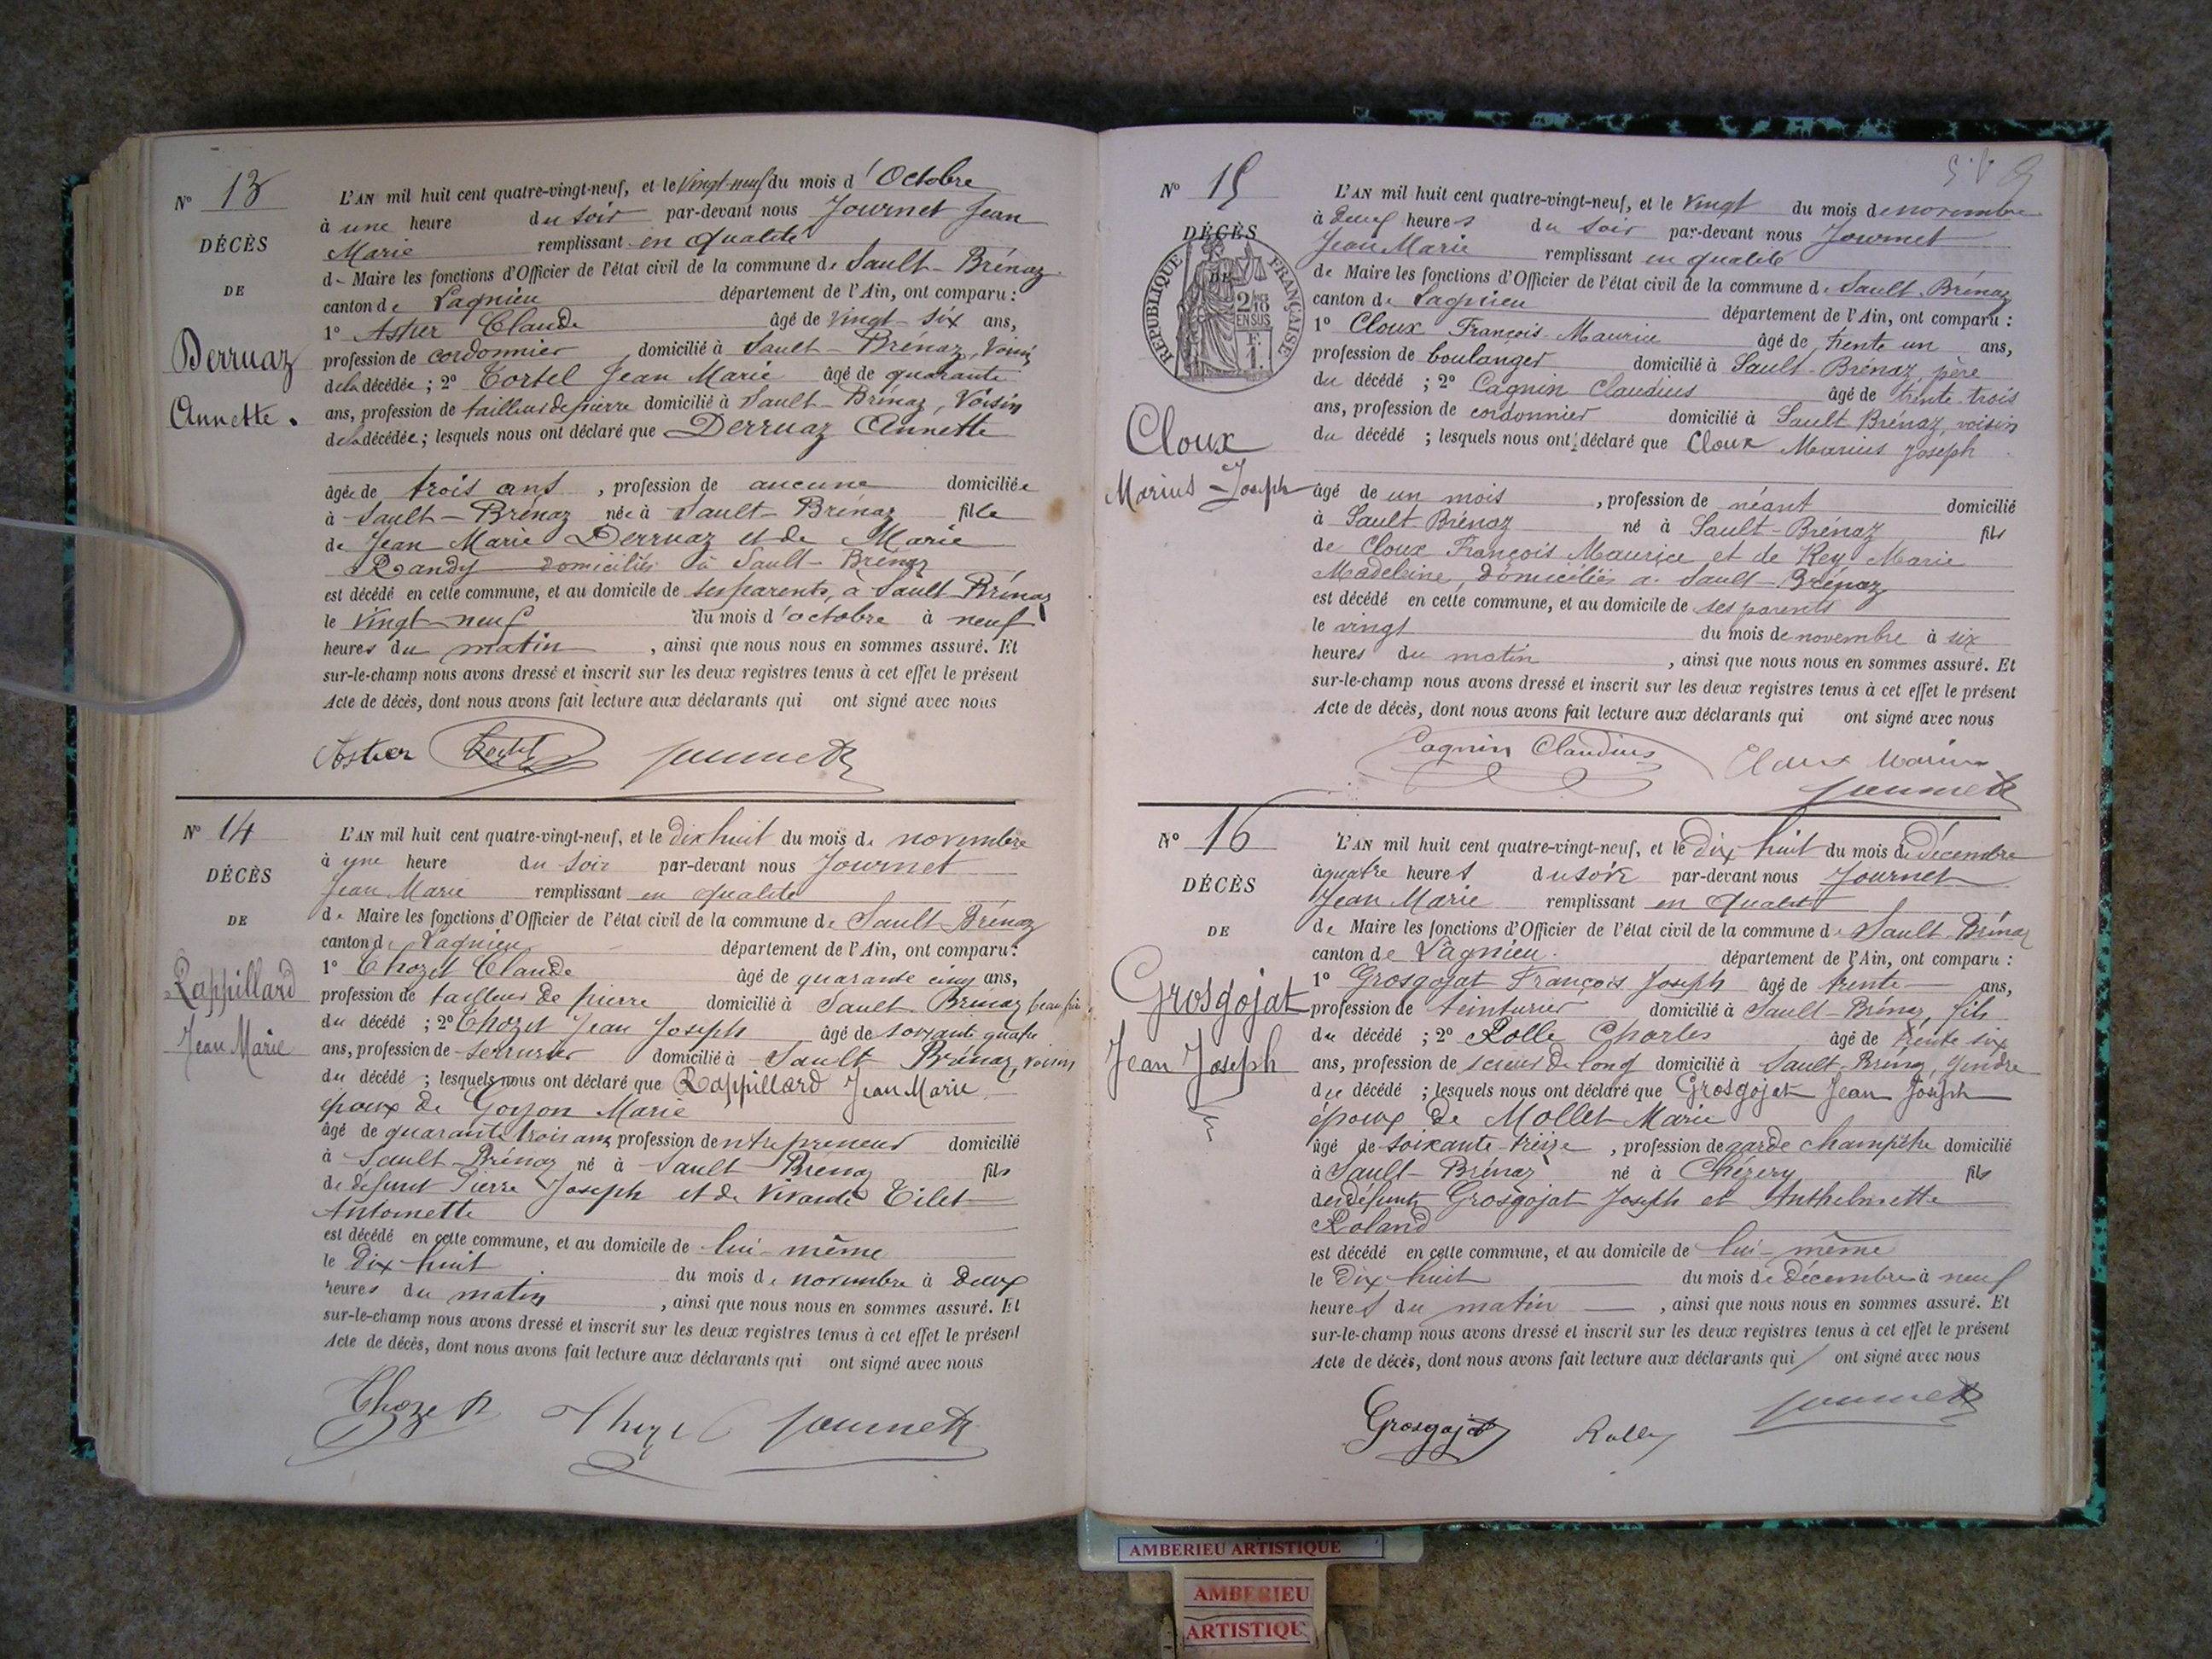 N° 13
DÉCÈS
DE
Derruaz
Annette.
L'AN mil huit cent quatre-vingt-neuf, et le Vingt-neuf du mois d'Octobre
à une heure du soir par-devant nous Journet Jean
Marie remplissant en qualité
de Maire les fonctions d'Officier de l'état civil de la commune de Sault-Brénaz
canton de Lagnieu département de l'Ain, ont comparu :
1° Astier Claude âgé de vingt-six ans,
profession de cordonnier, domicilié à Sault-Brénaz, Voisin
de la décédée ; 2° Tortel Jean Marie âgé de quarante
ans, profession de tailleur de pierre domicilié à Sault-Brénaz, Voisin
de la décédée ; lesquels nous ont déclaré que Derruaz Annette
âgée de trois ans, profession de aucune domiciliée
à Sault-Brénaz née à Sault-Brénaz fille
de Jean Marie Derruaz et de Marie
Randy domiciliés à Sault-Brénaz
est décédé en cette commune, et au domicile de ses parents, à Sault-Brénaz
le vingt-neuf du mois d'octobre à neuf
heures du matin, ainsi que nous nous en sommes assuré. Et
sur-le-champ nous avons dressé et inscrit sur les deux registres tenus à cet effet le présent
Acte de décès, dont nous avons fait lecture aux déclarants qui ont signé avec nous
Astier Tortel Journet
N° 14
DÉCÈS
DE
Rappillard
Jean Marie
L'AN mil huit cent quatre-vingt-neuf, et le dix huit du mois de novembre
à une heure du soir par-devant nous Journet
Jean Marie remplissant en qualité
de Maire les fonctions d'Officier de l'état civil de la commune de Sault-Brénaz
canton de Lagnieu département de l'Ain, ont comparu :
1° Thozet Claude âgé de quarante cinq ans,
profession de tailleur de pierre domicilié à Sault-Brénaz beau frère
du décédé ; 2° Thozet Jean Joseph âgé de soixante quatre
ans, profession de serrurier domicilié à Sault Brénaz, voisin
du décédé ; lesquels nous ont déclaré que Rappillard Jean Marie
époux de Goyon Marie
âgé de quarante trois ans profession de entrepreneur domicilié
à Sault-Brénaz né à Sault-Brénaz fils
de défunt Pierre Joseph et de Vivante Tilet
Antoinette
est décédé en cette commune, et au domicile de lui-même
le dix-huit du mois de novembre à deux
heures du matin, ainsi que nous nous en sommes assuré. Et
sur-le-champ nous avons dressé et inscrit sur les deux registres tenus à cet effet le présent
Acte de décès, dont nous avons fait lecture aux déclarants qui ont signé avec nous
Thozet Thozet Journet
N° 15
DÉCÈS
DE
RÉPUBLIQUE FRANÇAISE
EN SUS
Cloux
Marius-Joseph
L'AN mil huit cent quatre-vingt-neuf, et le vingt du mois de novembre
à deux heures du soir par-devant nous Journet
Jean Marie remplissant en qualité
de Maire les fonctions d'Officier de l'état civil de la commune de Sault-Brénaz
canton de Lagnieu département de l'Ain, ont comparu :
1° Cloux François-Maurice âgé de trente un ans,
profession de boulanger domicilié à Sault-Brénaz, père
du décédé ; 2° Cagnin Claudius âgé de trente-trois
ans, profession de cordonnier domicilié à Sault Brénaz, voisin
du décédé ; lesquels nous ont déclaré que Cloux Marius Joseph
âgé de un mois, profession de néant domicilié
à Sault-Brénaz né à Sault-Brénaz fils
de Cloux François Maurice et de Rey Marie
Madeleine, domiciliés à Sault-Brénaz
est décédé en cette commune, et au domicile de ses parents
le vingt du mois de novembre à six
heures du matin, ainsi que nous nous en sommes assuré. Et
sur-le-champ nous avons dressé et inscrit sur les deux registres tenus à cet effet le présent
Acte de décès, dont nous avons fait lecture aux déclarants qui ont signé avec nous
Cagnin Claudius Cloux
Journet
N° 16
DÉCÈS
DE
Grosgojat
Jean Joseph
L'AN mil huit cent quatre-vingt-neuf, et le Dix huit du mois de décembre
à quatre heures du soir par-devant nous Journet
Jean Marie remplissant en qualité
de Maire les fonctions d'Officier de l'état civil de la commune de Sault-Brénaz
canton de Lagnieu département de l'Ain, ont comparu :
1° Grosgojat François Joseph âgé de trente ans,
profession de teinturier domicilié à Sault-Brénaz, fils
du décédé ; 2° Rolle Charles âgé de trente six
ans, profession de scieur de long domicilié à Sault-Brénaz, gendre
du décédé ; lesquels nous ont déclaré que Grosgojat Jean Joseph
époux de Mollet Marie
âgé de soixante-treize, profession de garde champêtre domicilié
à Sault-Brénaz né à Chézery fils
des défunts Grosgojat Joseph et Anthelmette
Roland
est décédé en cette commune, et au domicile de lui-même
le Dix-huit du mois de décembre à neuf
heures du matin, ainsi que nous nous en sommes assuré. Et
sur-le-champ nous avons dressé et inscrit sur les deux registres tenus à cet effet le présent
Acte de décès, dont nous avons fait lecture aux déclarants qui ont signé avec nous
Grosgojat Rolle Journet
AMBERIEU ARTISTIQUE
AMBERIEU
ARTISTIQUE